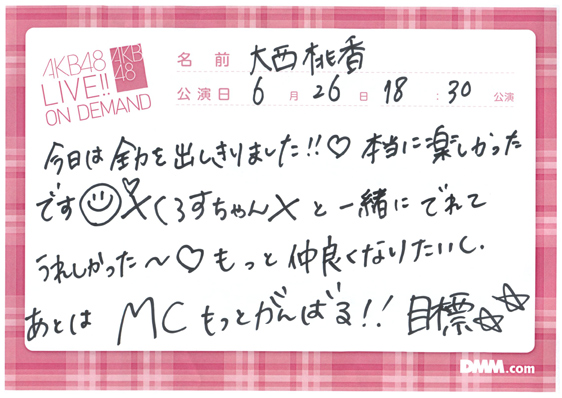 AKB48
LIVE!!
ON DEMAND
AKB
48
名前 大西桃香
公演日 6月26日 18:30 公演
今日は全力を出しきりました!!♡ 本当に楽しかった
です☺♡×くるすちゃん×と一緒にでれて
うれしかった〜♡もっと仲良くなりたいし、
あとは MCもっとがんばる!! 目標☆☆
DMM.com